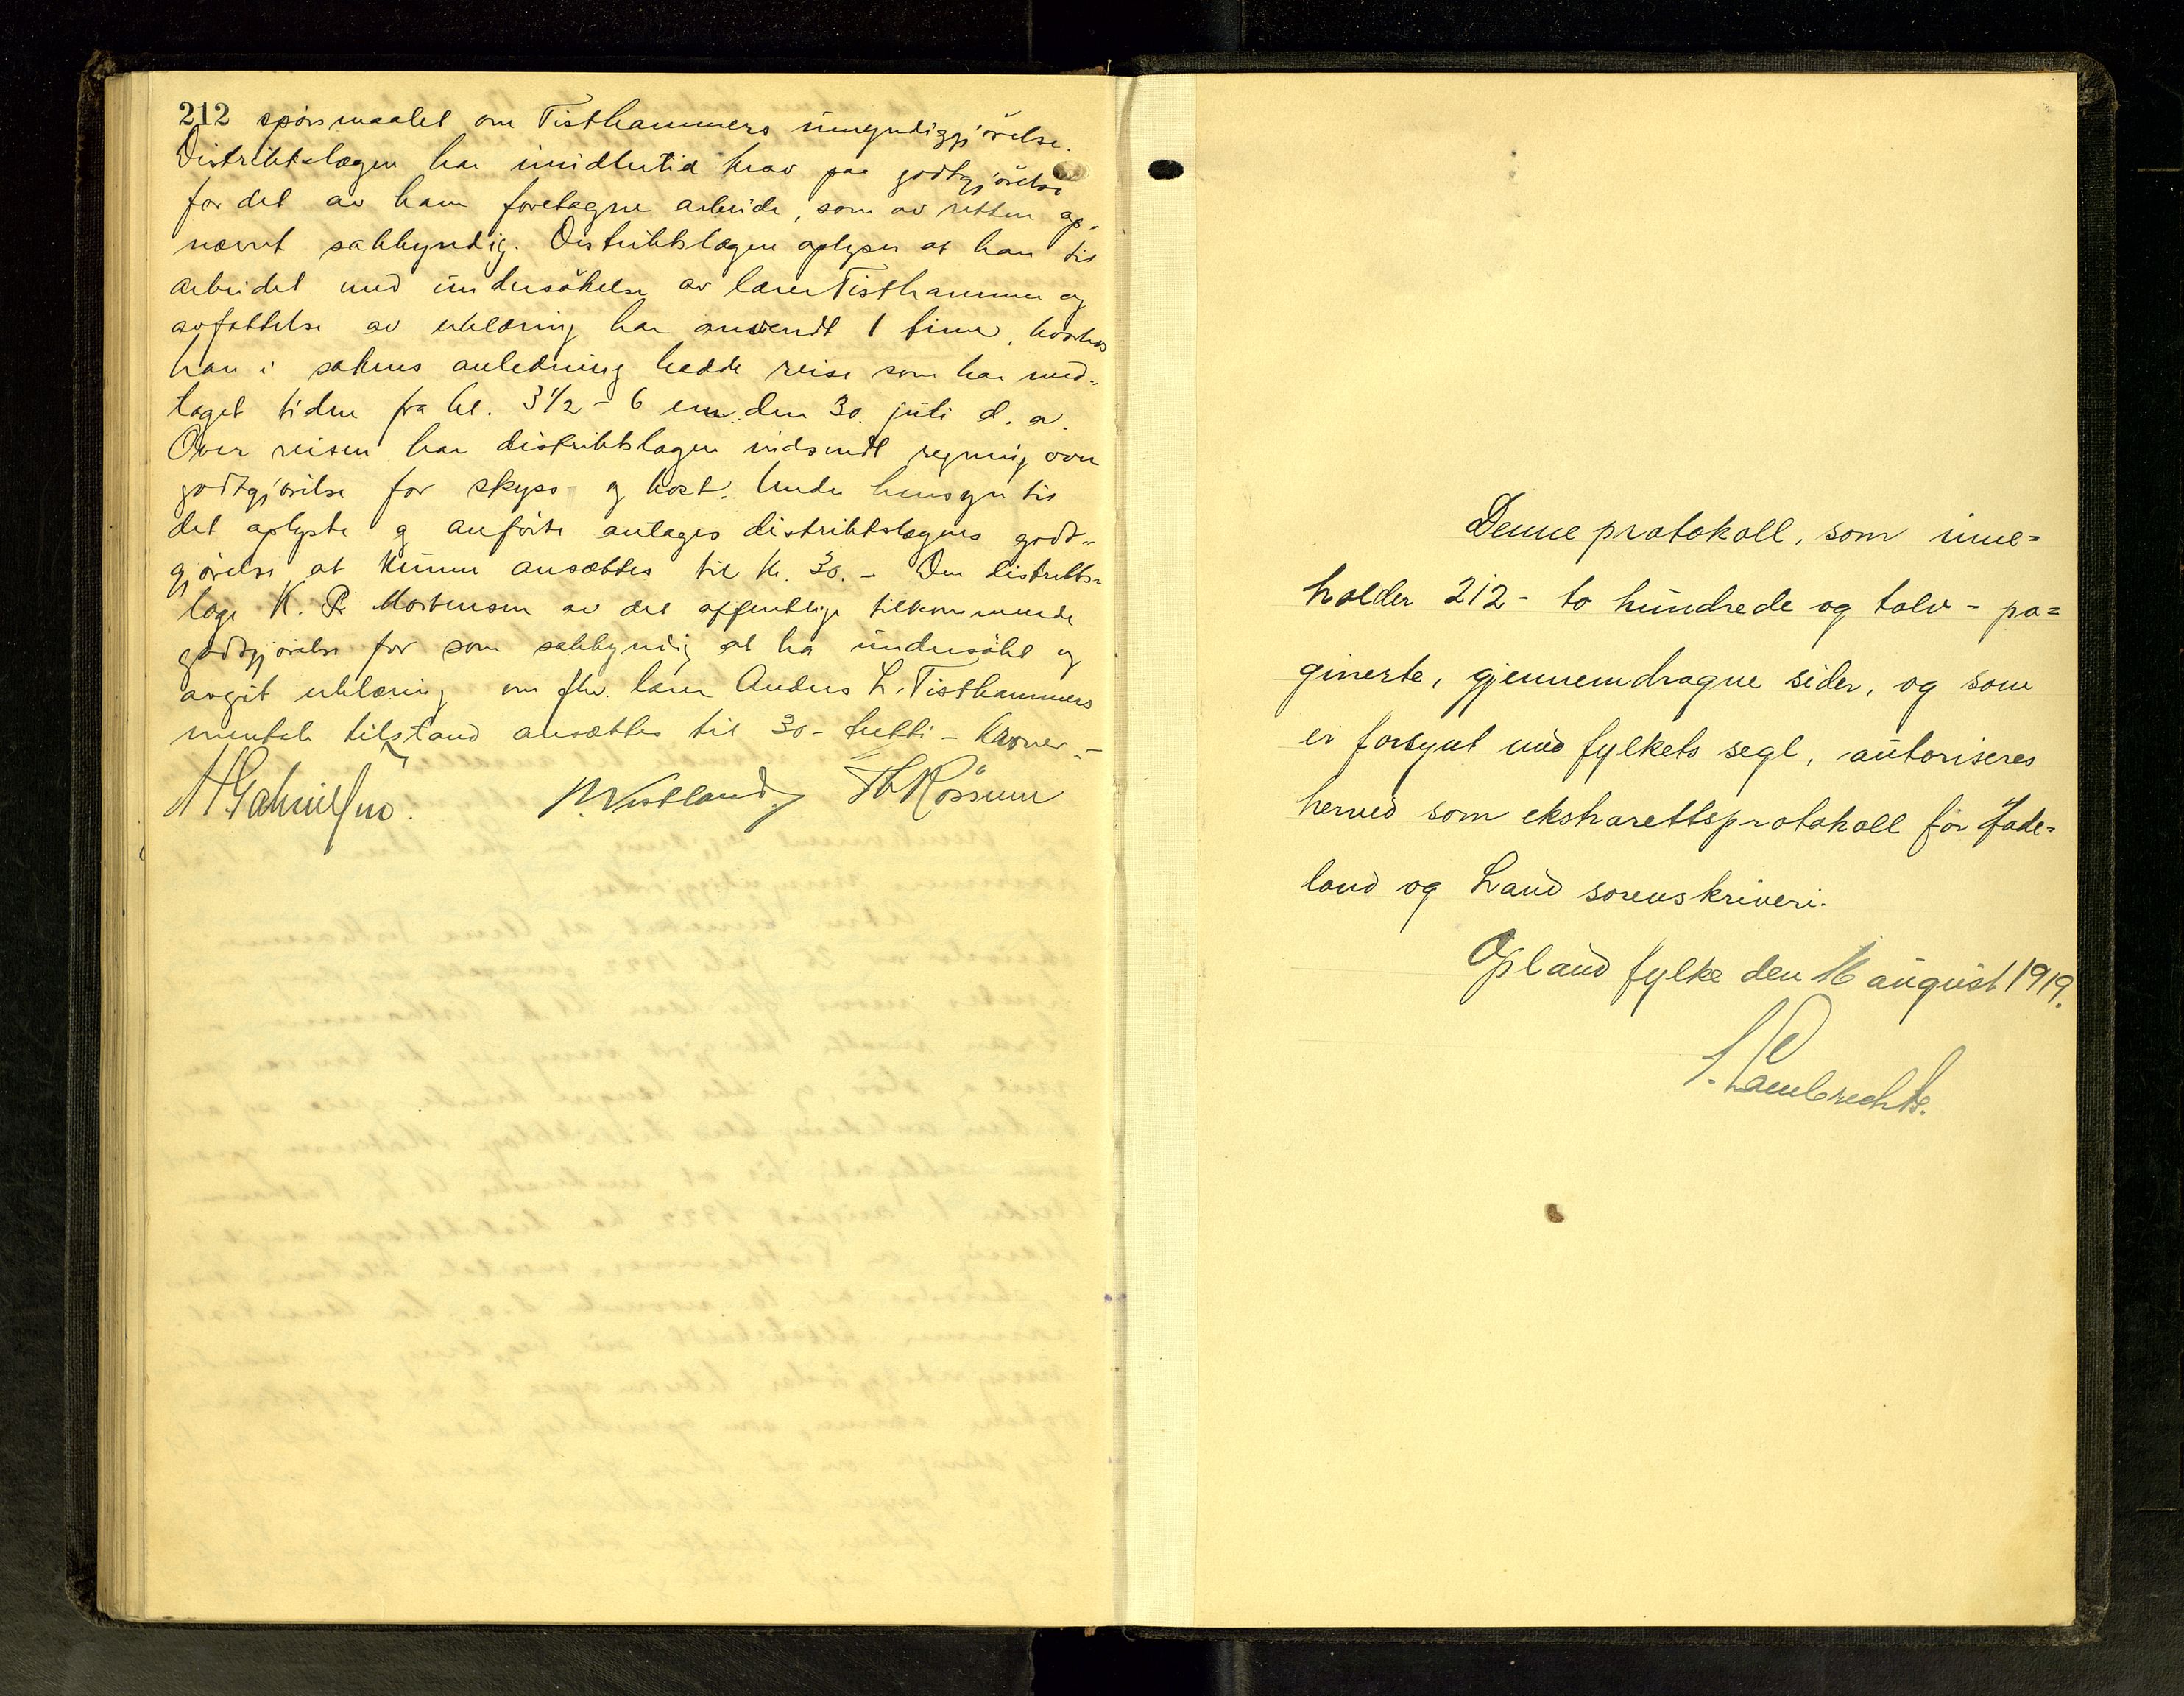 212 spörsmaalet om Tisthammers umyndiggjörelse.
Distriktslægen har imidlertid krav paa godtgjörelse
for det av ham foretagne arbeide, som av retten op-
nævnt sakkyndig. Distriktslægen oplyser at han til
arbeidet med undersökelse av lærer Tisthammer og
avfattelse av erklæring har anvendt 1 time, hvorhos
han i sakens anledning hadde reise som har med-
taget tiden fra kl. 3 1/2 - 6 em. den 30. juli d. a.
Over reisen har distriktslægen indsendt regning over
godtgjörelse for skyss- og kost. Under hensyn til
det oplyste og anförte antages distriktslægens godt-
gjörelse at kunne ansættes til kr. 30. - Den distrikts-
læge K. R. Mortensen av det offentlige tilkommende
godtgjörelse for som sakkyndig at ha undersökt og
avgit erklæring om fhv. lærer Anders L. Tisthammers
mentale tilstand ansættes til 30 - tretti - kroner. -
H Gabrielsen. N. Vestland. Th Rössum
Denne protokoll, som inne=
holder 212 - to hundrede og tolv - pa=
ginerte, gjennemdragne sider, og som
er forsynt med fylkets segl, autoriseres
herved som ekstrarettsprotokoll for Hade=
land og Land sorenskriveri.
Opland fylke den 16 august 1919.
S. Lambrechts.